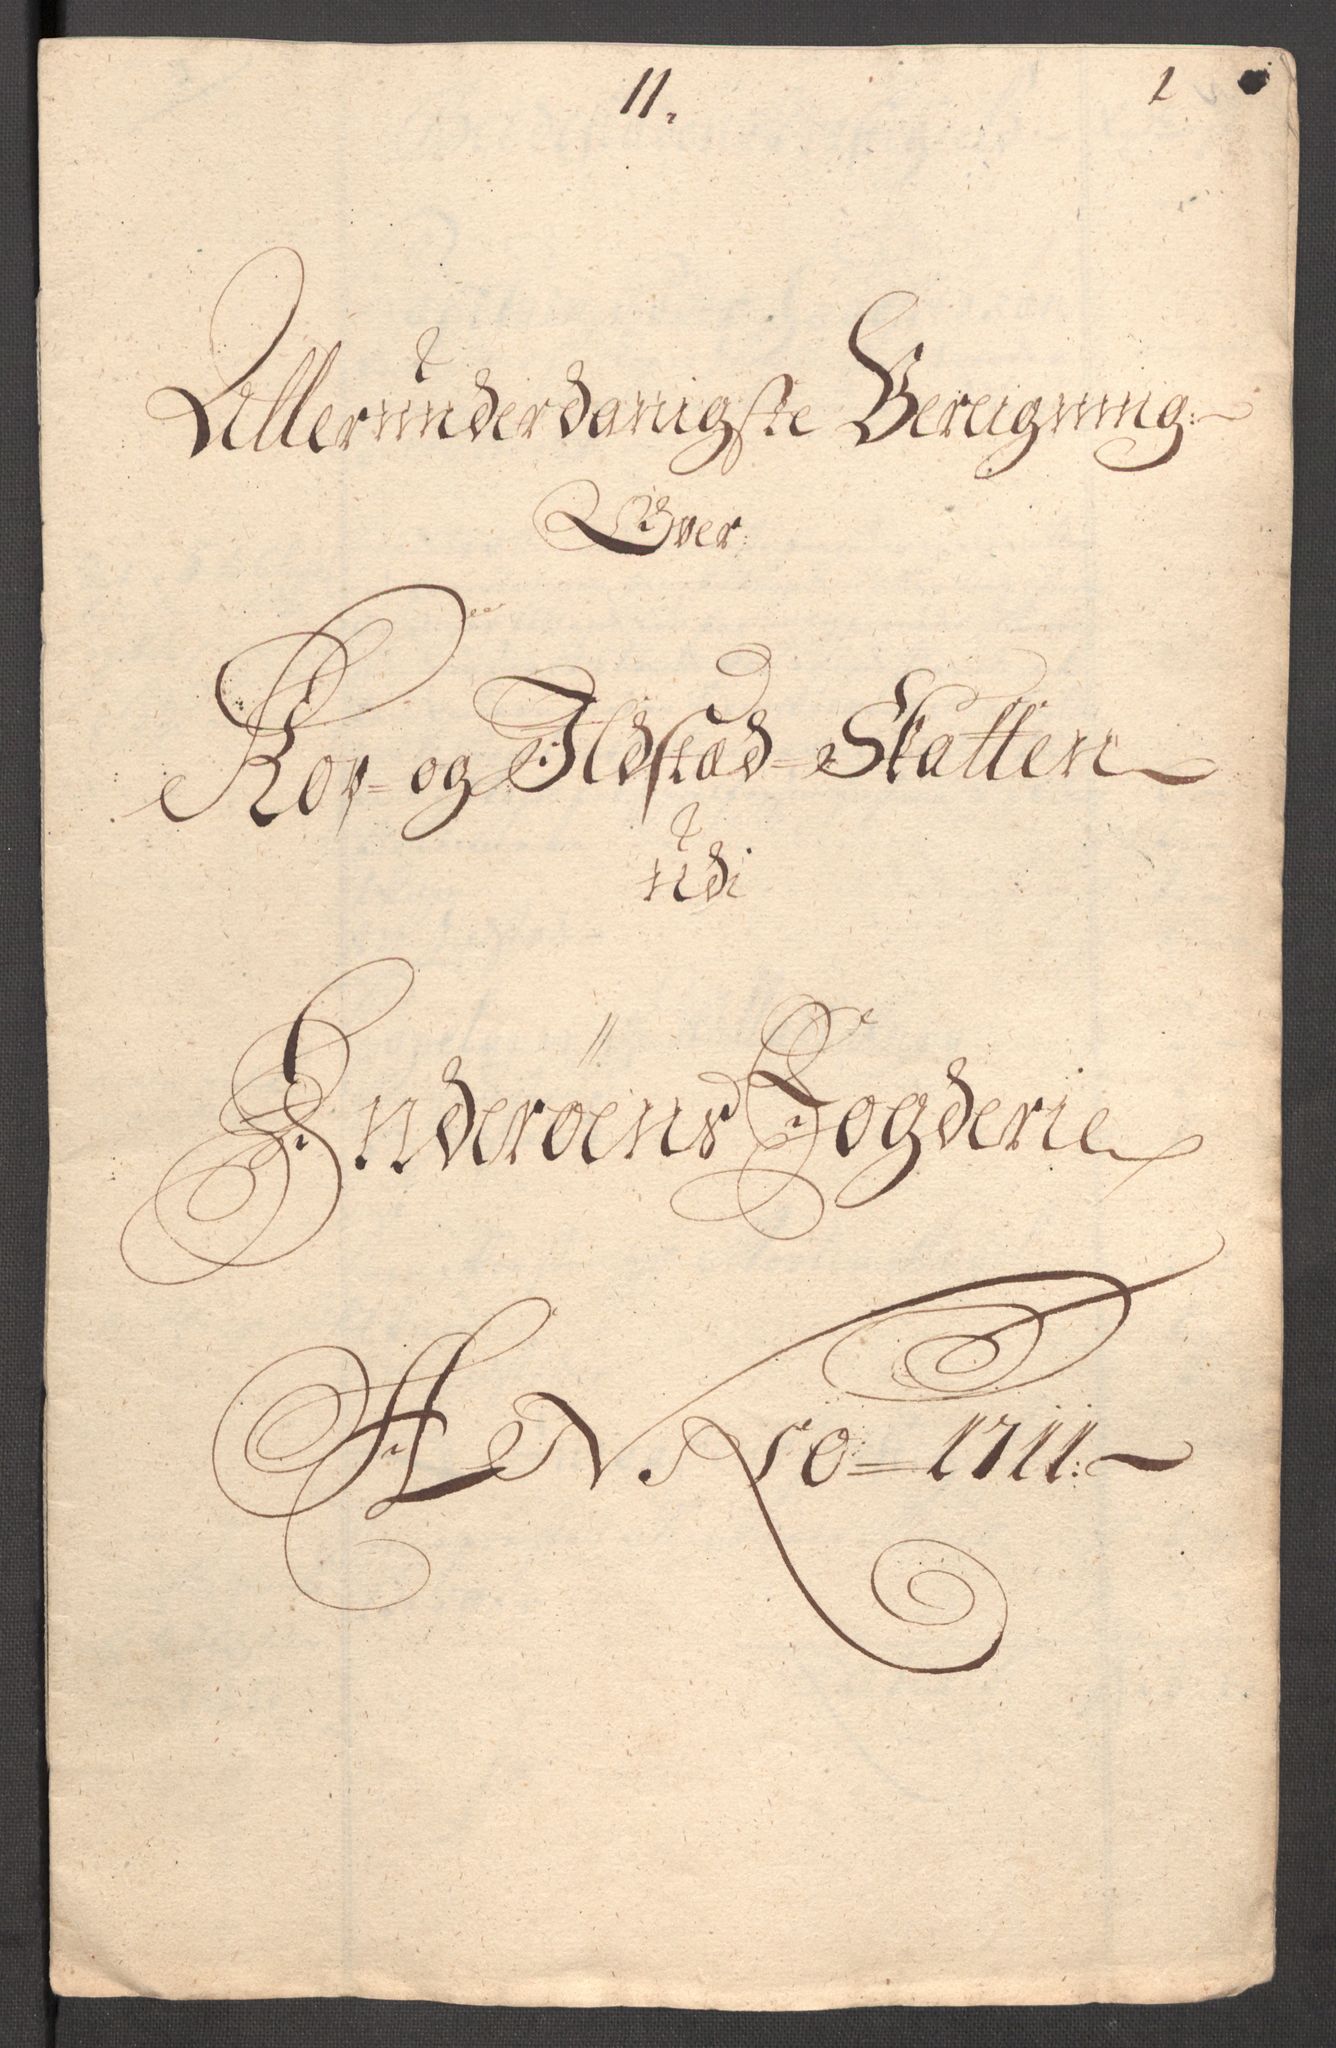 11. 1
Allerunderdanigste Bereigning:
Over:
Roß- og Ildstæd-Skatten
udi
Inderöens Fogderie
ANNO 1711: